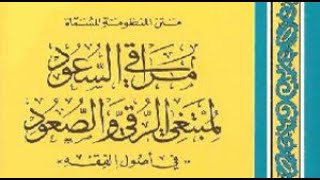 متن المنظومة المسماة
مراقي السعود
لمبتغي الرقي والصعود
«في أصول الفقه»